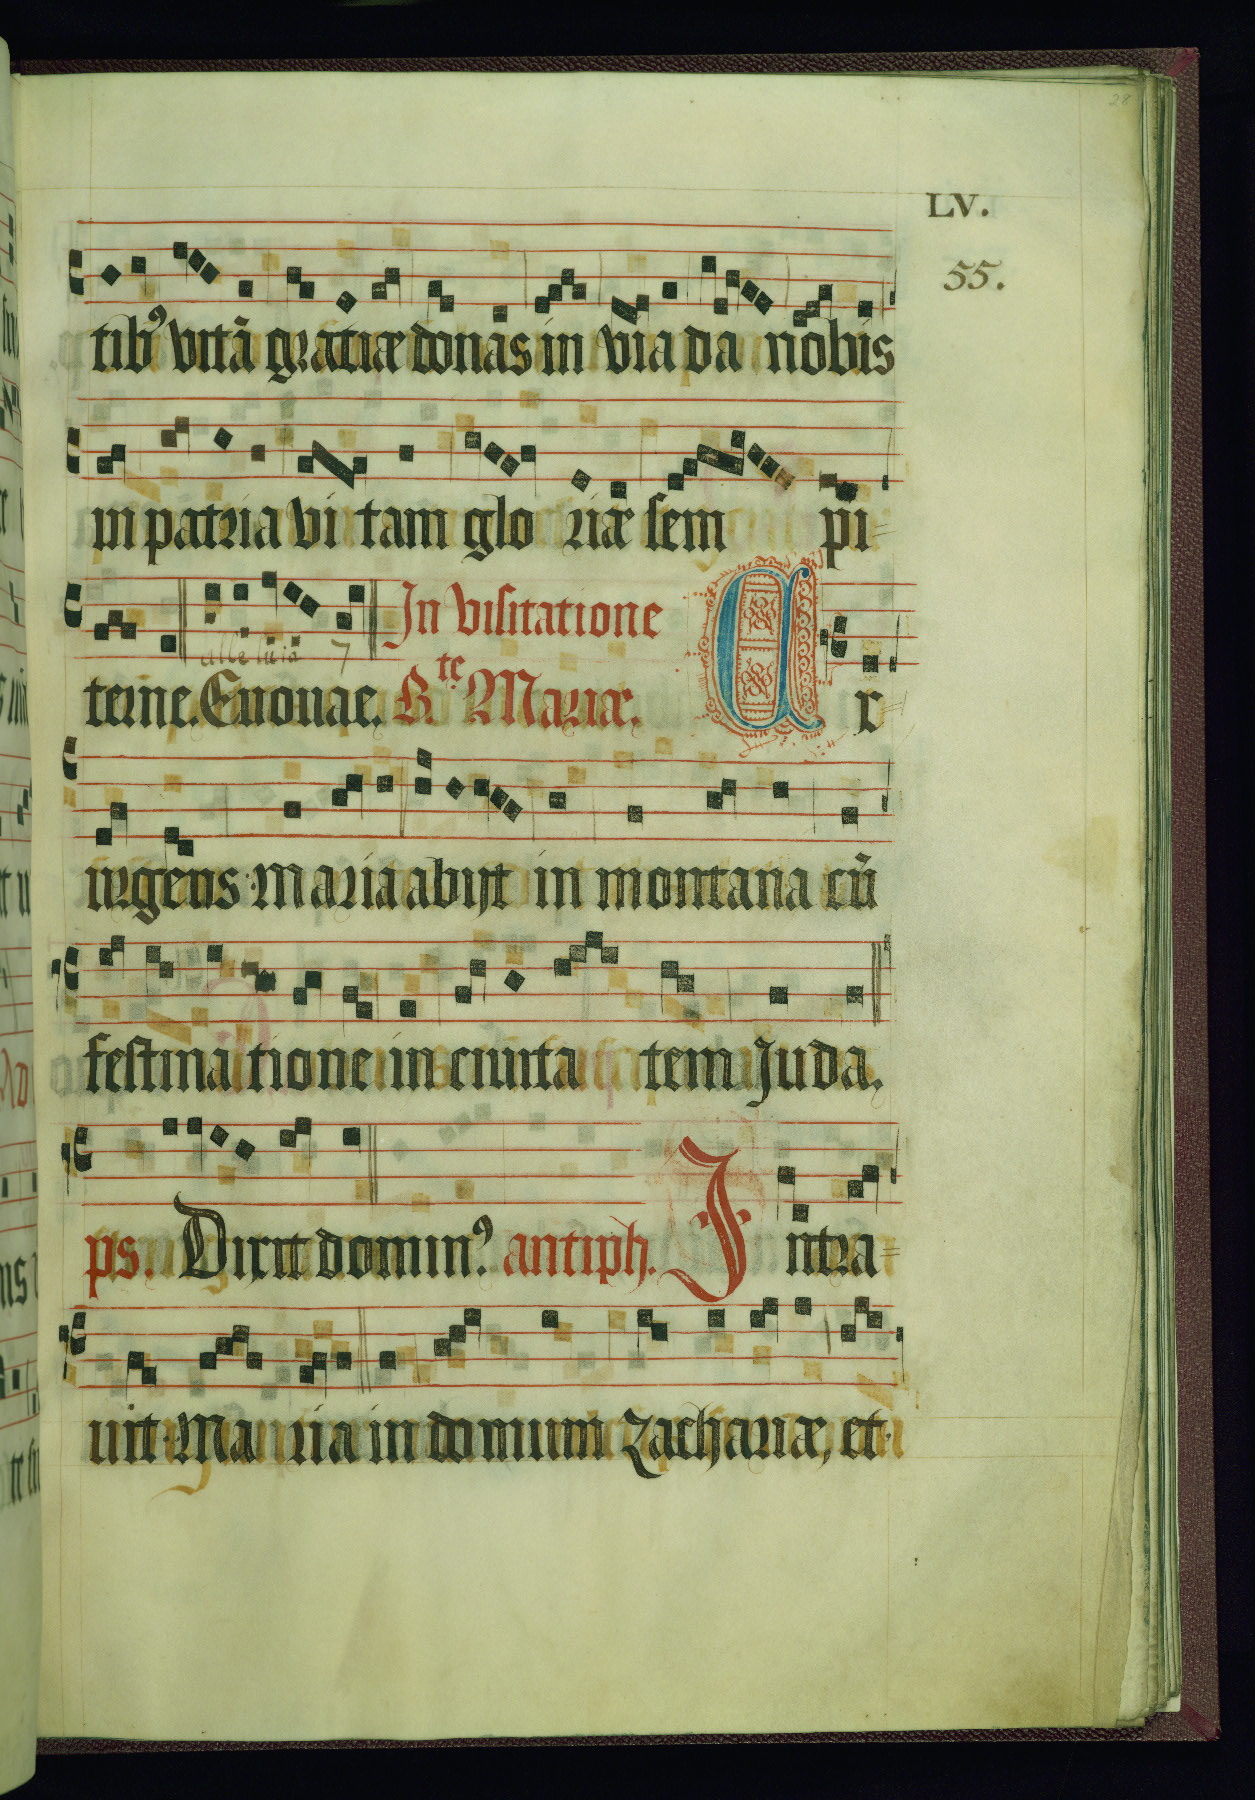 28
LV.
55.
tibꝰ vitā gratiæ donas in via da nobis
in patria vi tam glo riæ sem pi=
alleluia
In visitatione
terne. Euouae. B.te Mariæ. A x=
urgens Maria abijt in montana cū
festina tione in ciuita tem Juda.
ps. Dixit dominꝰ. antiph. I ntra=
uit Ma ria in domum Zachariæ, et